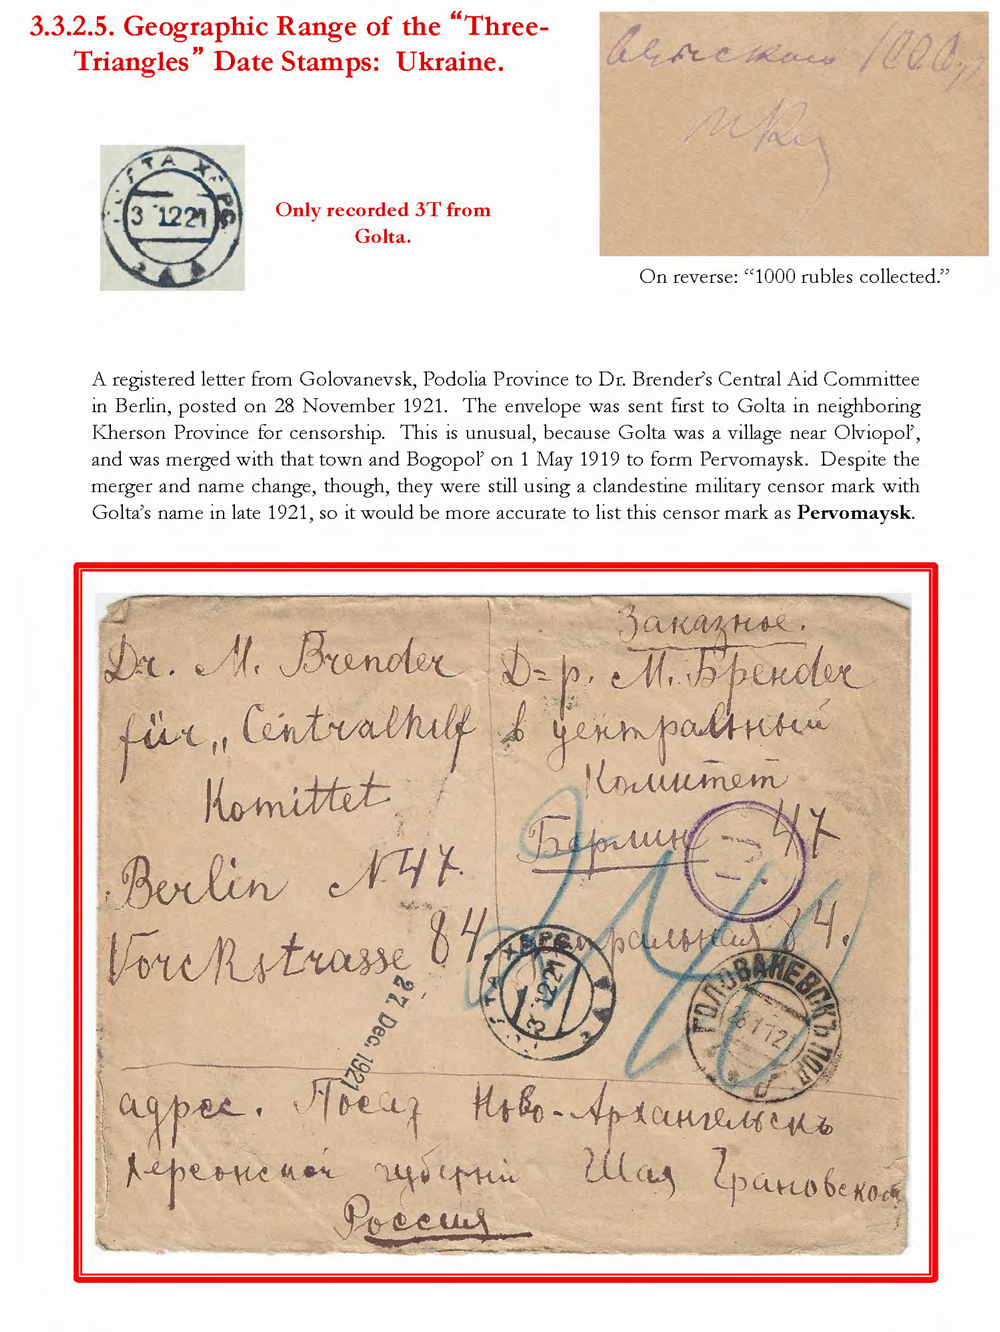 3.3.2.5. Geographic Range of the “Three-
Triangles” Date Stamps: Ukraine.
1000
ТА ХЕРС
3 12 21
Only recorded 3T from
Golta.
On reverse: “1000 rubles collected.”
A registered letter from Golovanevsk, Podolia Province to Dr. Brender's Central Aid Committee
in Berlin, posted on 28 November 1921. The envelope was sent first to Golta in neighboring
Kherson Province for censorship. This is unusual, because Golta was a village near Olviopol’,
and was merged with that town and Bogopol’ on 1 May 1919 to form Pervomaysk. Despite the
merger and name change, though, they were still using a clandestine military censor mark with
Golta’s name in late 1921, so it would be more accurate to list this censor mark as Pervomaysk.
Заказное.
Dr. M. Brender
für „Centralhilf
Komittet
Berlin N 47.
Yorckstrasse 84.
Д=р. М. Брендер
в центральный
Комитет
Берлин 47
84.
ТА ХЕРС
3 12 21
ГОЛОВАНЕВСКЪ ПОД
28 11 21
27. Dec. 1921
адрес. Посад Ново-Архангельскъ
Херсонской губерни Шая Грановской
Россия